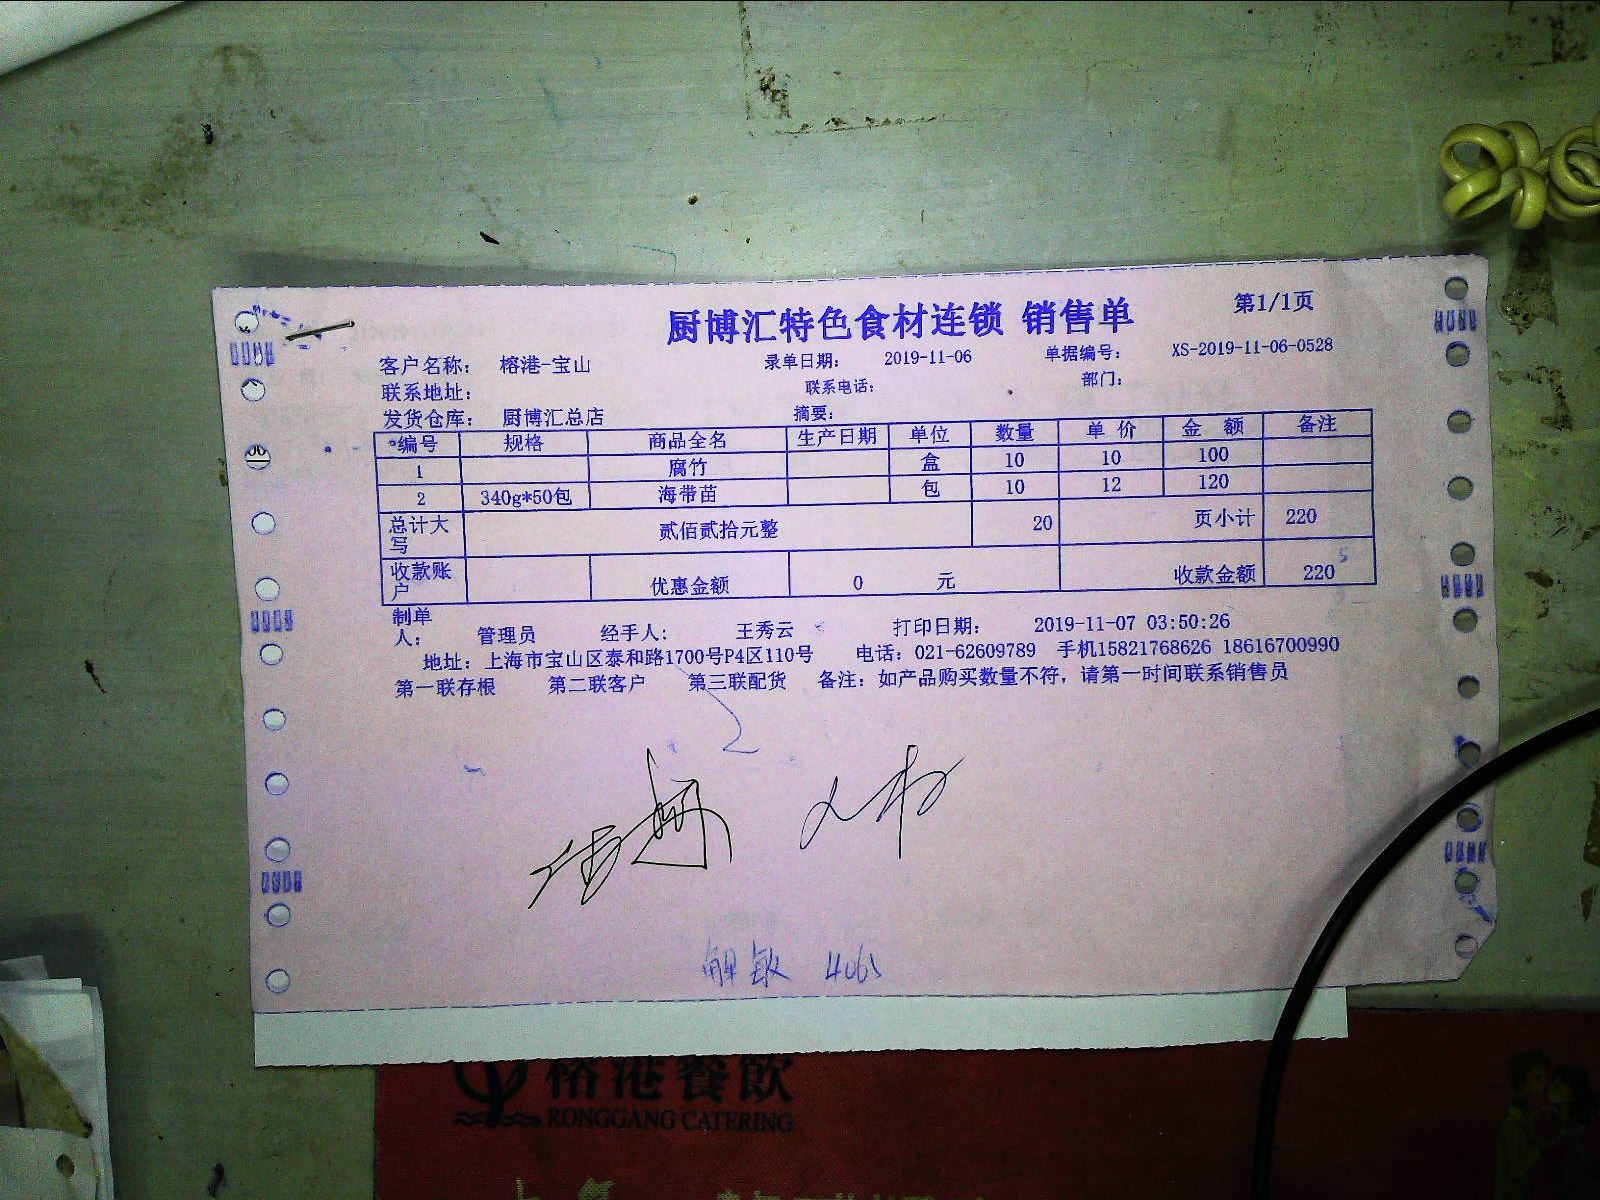 厨博汇特色食材连锁 销售单 第1/1页
客户名称: 榕港-宝山 录单日期: 2019-11-06 单据编号: XS-2019-11-06-0528
联系地址: 联系电话: 部门:
发货仓库: 厨博汇总店 摘要:
编号 规格 商品全名 生产日期 单位 数量 单价 金额 备注
1 腐竹 盒 10 10 100
2 340g*50包 海带苗 包 10 12 120
总计大写 贰佰贰拾元整 20 页小计 220
收款账户 优惠金额 0 元 收款金额 220
制单人: 管理员 经手人: 王秀云 打印日期: 2019-11-07 03:50:26
地址: 上海市宝山区泰和路1700号P4区110号 电话: 021-62609789 手机15821768626 18616700990
第一联存根 第二联客户 第三联配货 备注: 如产品购买数量不符, 请第一时间联系销售员
榕港餐飲
RONGGANG CATERING